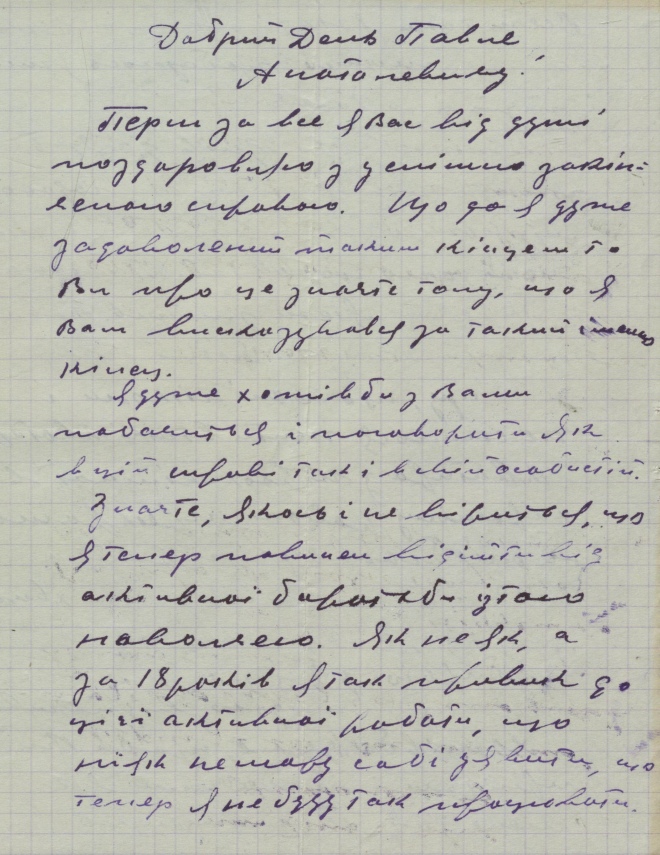 Добрий День Павле
Анатолевичу!
Перш за все я Вас від душі
поздоровляю з успішно закін=
ченою справою. Що до я дуже
задоволений таким кінцем то
Ви про це знаєте тому, що я
Вам висказувався за такий іменно
кінец.
Я дуже хотів би з Вами
побачиться і поговорити як
в цій справі так і в своїй особистій.
Знаєте, якось і не віриться, що
я тепер повинен відійти від
активної боротьби і того
наволяею. Як не як, а
за 18 років я так привик до
цієї активної роботи, що
ніяк не можу собі уявити, що
тепер я не буду так працювати.